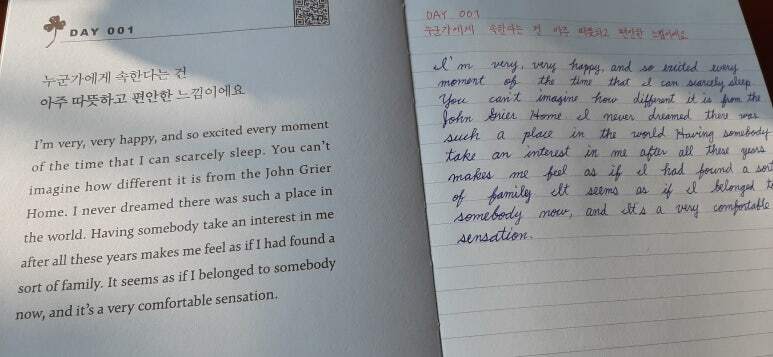 DAY 001
누군가에게 속한다는 건
아주 따뜻하고 편안한 느낌이에요
I'm very, very happy, and so excited every moment
of the time that I can scarcely sleep. You can't
imagine how different it is from the John Grier
Home. I never dreamed there was such a place in
the world. Having somebody take an interest in me
after all these years makes me feel as if I had found a
sort of family. It seems as if I belonged to somebody
now, and it's a very comfortable sensation.
DAY 001
누군가에게 속한다는 건 아주 따뜻하고 편안한 느낌이에요
I'm very, very happy, and so exited every
moment of the time that I can scarcely sleep
You can't imagine how different it is from the
John Grier Home I never dreamed there was
such a place in the world Having somebody
take an interest in me after all these years
makes me feel as if I had found a sort
of family It seems as if I belonged to
somebody now, and it's a very comfortable
sensation.